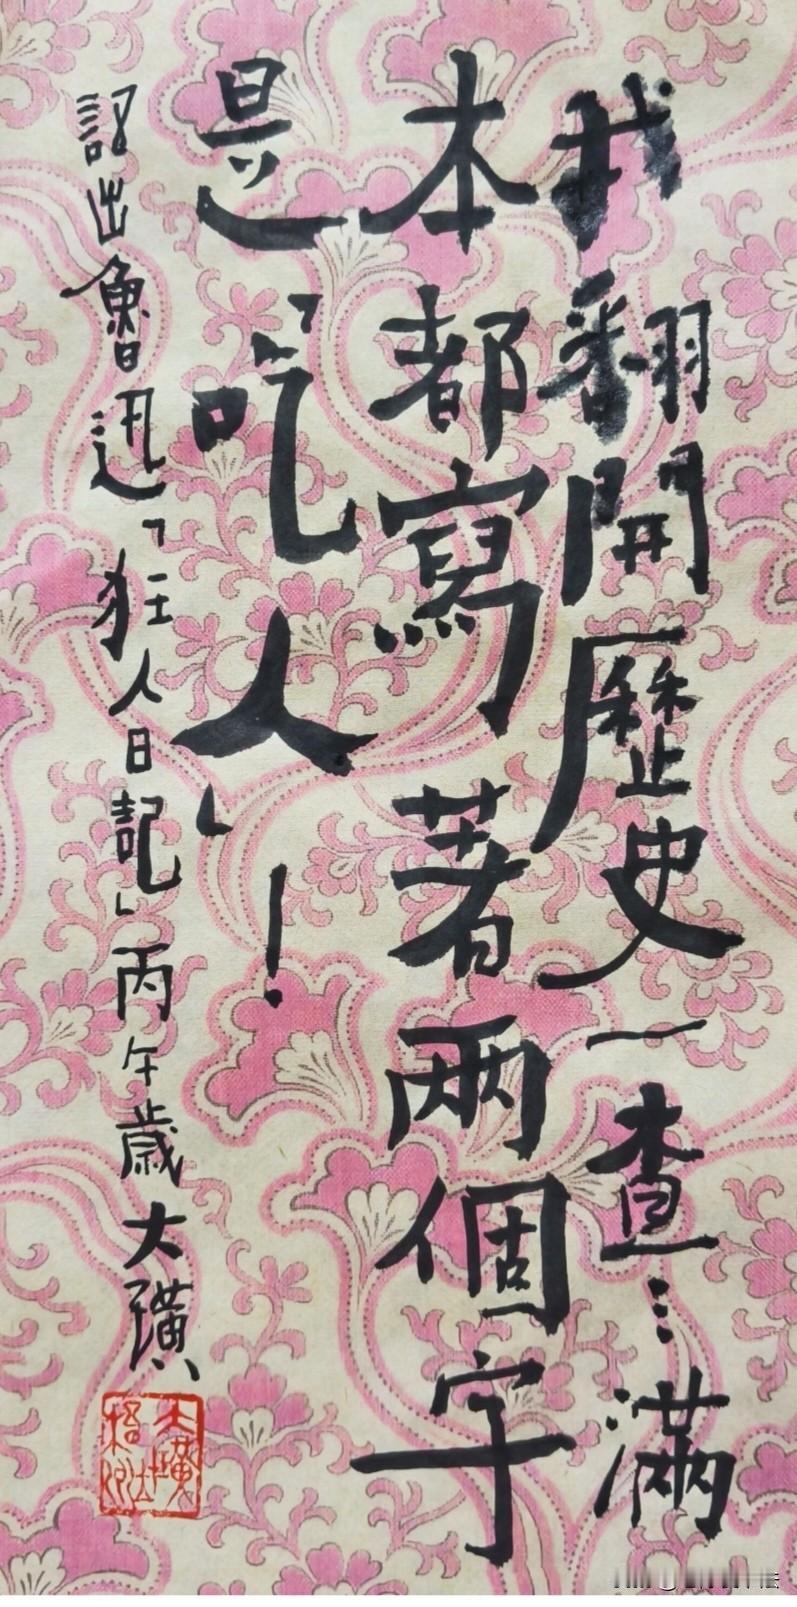 我翻開歷史一查⋯滿
本都寫著兩個字
是「吃人」！
語出魯迅「狂人日記」丙午歲大璜